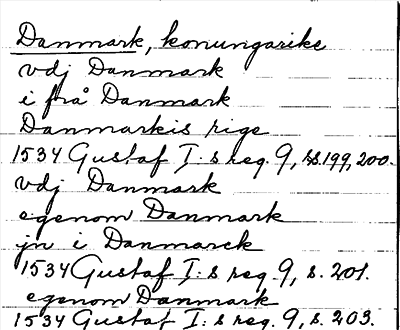 Danmark, konungarike
vdj Danmark
i frå Danmark
Danmarkis rige
1534 Gustaf I:s reg. 9, s. 199, 200.
vdj Danmark
egenom Danmark
jn i Danmarck
1534 Gustaf I:s reg. 9, s. 201.
egenom Danmark
1534 Gustaf I:s reg. 9, s. 203.